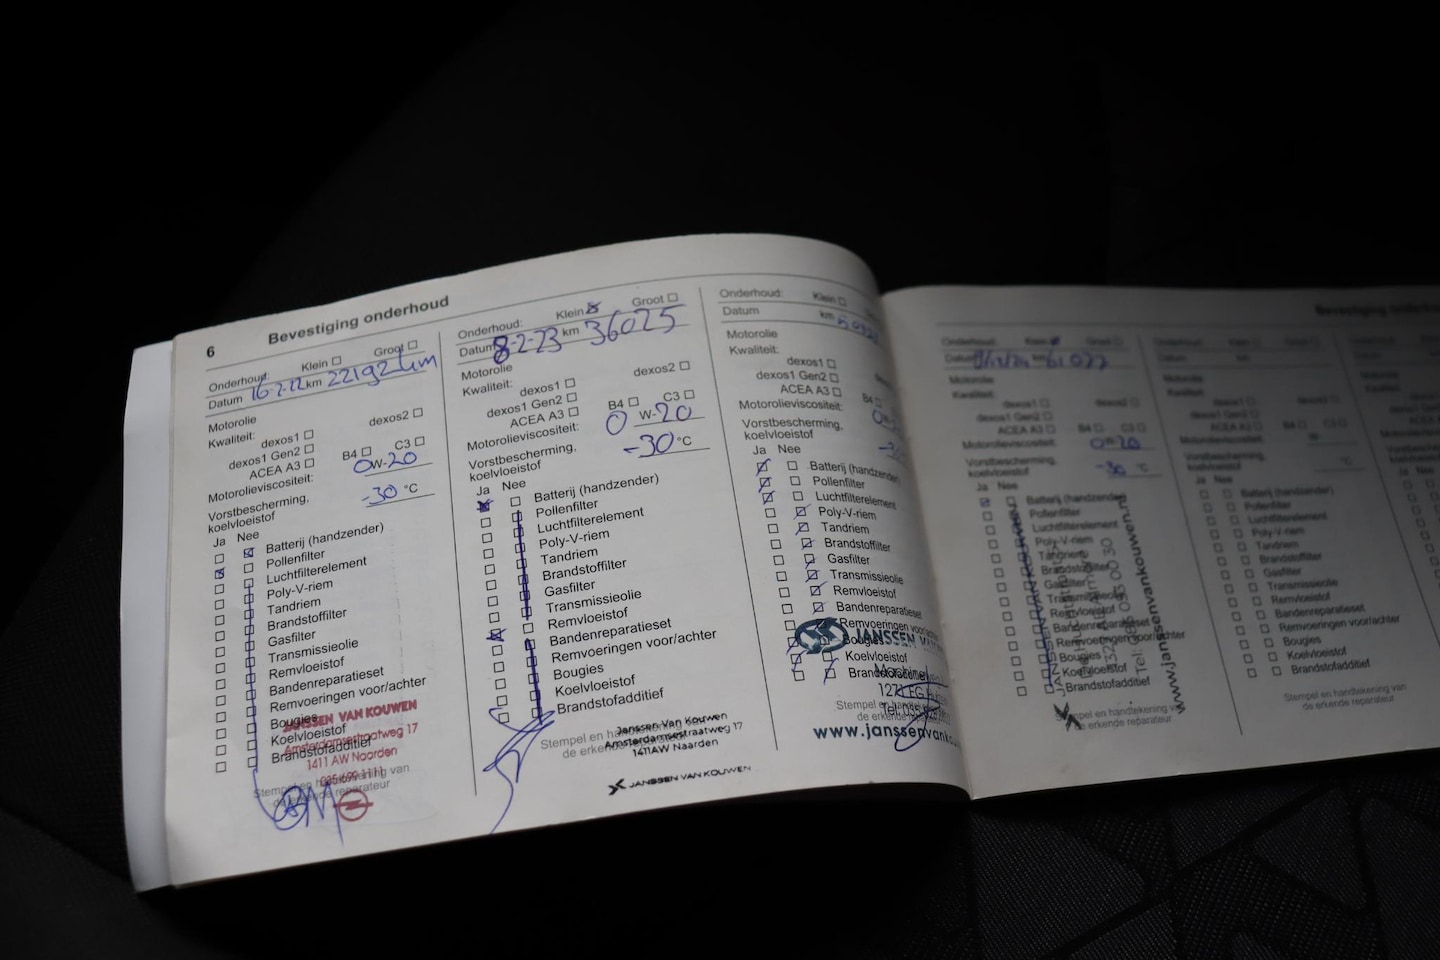 6
Bevestiging onderhoud
Onderhoud: Klein Groot
Datum 16-2-22 km 22192 km
Motorolie
Kwaliteit: dexos1 dexos2
dexos1 Gen2
ACEA A3 B4 C3
Motorolieviscositeit: 0W-20
Vorstbescherming,
koelvloeistof -30 °C
Ja Nee
Batterij (handzender)
Pollenfilter
Luchtfilterelement
Poly-V-riem
Tandriem
Brandstoffilter
Gasfilter
Transmissieolie
Remvloeistof
Bandenreparatieset
Remvoeringen voor/achter
Bougies
Koelvloeistof
Brandstofadditief
JANSSEN VAN KOUWEN
Amsterdamsestraatweg 17
1411 AW Naarden
035-699 1111
Stempel en handtekening van
de erkende reparateur
Onderhoud: Klein Groot
Datum 8-2-23 km 36025
Motorolie
Kwaliteit: dexos1 dexos2
dexos1 Gen2
ACEA A3 B4 C3
Motorolieviscositeit: 0 W-20
Vorstbescherming,
koelvloeistof -30 °C
Ja Nee
Batterij (handzender)
Pollenfilter
Luchtfilterelement
Poly-V-riem
Tandriem
Brandstoffilter
Gasfilter
Transmissieolie
Remvloeistof
Bandenreparatieset
Remvoeringen voor/achter
Bougies
Koelvloeistof
Brandstofadditief
Janssen Van Kouwen
Stempel en handtekening
Amsterdamsestraatweg 17
de erkende
1411AW Naarden
JANSSEN VAN KOUWEN
Onderhoud: Klein
Datum km
Motorolie
Kwaliteit: dexos1
dexos1 Gen2
ACEA A3 B4
Motorolieviscositeit:
Vorstbescherming,
koelvloeistof
Ja Nee
Batterij (handzender)
Pollenfilter
Luchtfilterelement
Poly-V-riem
Tandriem
Brandstoffilter
Gasfilter
Transmissieolie
Remvloeistof
Bandenreparatieset
Remvoeringen voor/achter
Bougies
JANSSEN
Koelvloeistof
Stempel en
de erkende
www.janssenvankou
Onderhoud: Klein Groot
Datum 61077
Motorolie
Kwaliteit: dexos1 dexos2
dexos1 Gen2
ACEA A3 B4 C3
Motorolieviscositeit: 0W-20
Vorstbescherming,
koelvloeistof -30 °C
Ja Nee
Batterij (handzender)
Pollenfilter
Luchtfilterelement
Poly-V-riem
Tandriem
Brandstoffilter
Gasfilter
Transmissieolie
Remvloeistof
Bandenreparatieset
Remvoeringen voor/achter
Bougies
Koelvloeistof
Brandstofadditief
www.janssenvankouwen.nl
Stempel en handtekening van
de erkende reparateur
Motorolie
Kwaliteit: dexos1
dexos1 Gen2
ACEA A3 B4 C3
Motorolieviscositeit:
Vorstbescherming,
koelvloeistof °C
Ja Nee
Batterij (handzender)
Pollenfilter
Luchtfilterelement
Poly-V-riem
Tandriem
Brandstoffilter
Gasfilter
Transmissieolie
Remvloeistof
Bandenreparatieset
Remvoeringen voor/achter
Bougies
Koelvloeistof
Brandstofadditief
Stempel en handtekening van
de erkende reparateur
Bevestiging